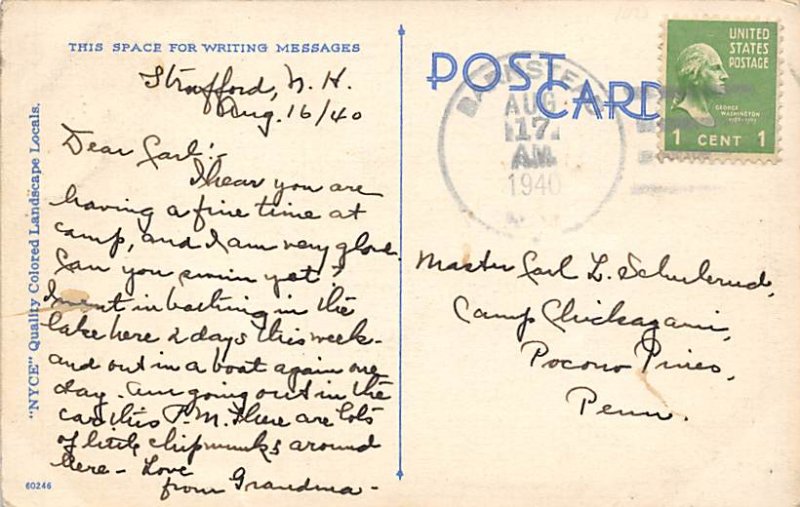 THIS SPACE FOR WRITING MESSAGES
Strafford, N. H.
Aug. 16/40
Dear Carl:
I hear you are
having a fine time at
camp, and I am very glad.
Can you swim yet?
I went in bathing in the
lake here 2 days this week-
and out in a boat again one
day. Am going out in the
car this P.M. There are lots
of little chipmunks around
here - Love
from Grandma -
"NYCE" Quality Colored Landscape Locals.
60246
POST CARD
AUG
17
AM
1940
UNITED
STATES
POSTAGE
GEORGE
WASHINGTON
1 CENT 1
Master Carl L.
Camp
Pocono Pines,
Penn.